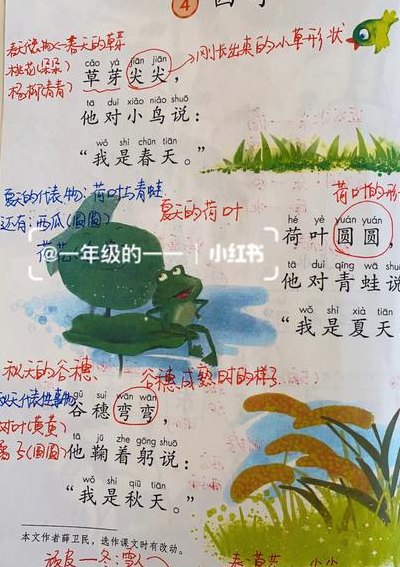 4
春天代表物：春天的草芽
桃花(朵朵)
杨柳(青青)
刚长出来的小草形状
cǎo yá jiān jiān
草芽尖尖，
tā duì xiǎo niǎo shuō
他对小鸟说：
wǒ shì chūn tiān
“我是春天。”
夏天的代表物：荷叶与青蛙
还有：西瓜(圆圆)
夏天的荷叶
荷叶的形
hé yè yuán yuán
荷叶圆圆，
@一年级的一一 | 小红书
tā duì qīng wā shuō
他对青蛙说
wǒ shì xià tiān
“我是夏天
秋天的谷穗
谷穗成熟时的样子
秋天代表事物：
gǔ suì wān wān
谷穗弯弯，
树叶(黄黄)
(圆圆)
tā jū zhe gōng shuō
他鞠着躬说：
wǒ shì qiū tiān
“我是秋天。”
本文作者薛卫民，选作课文时有改动。